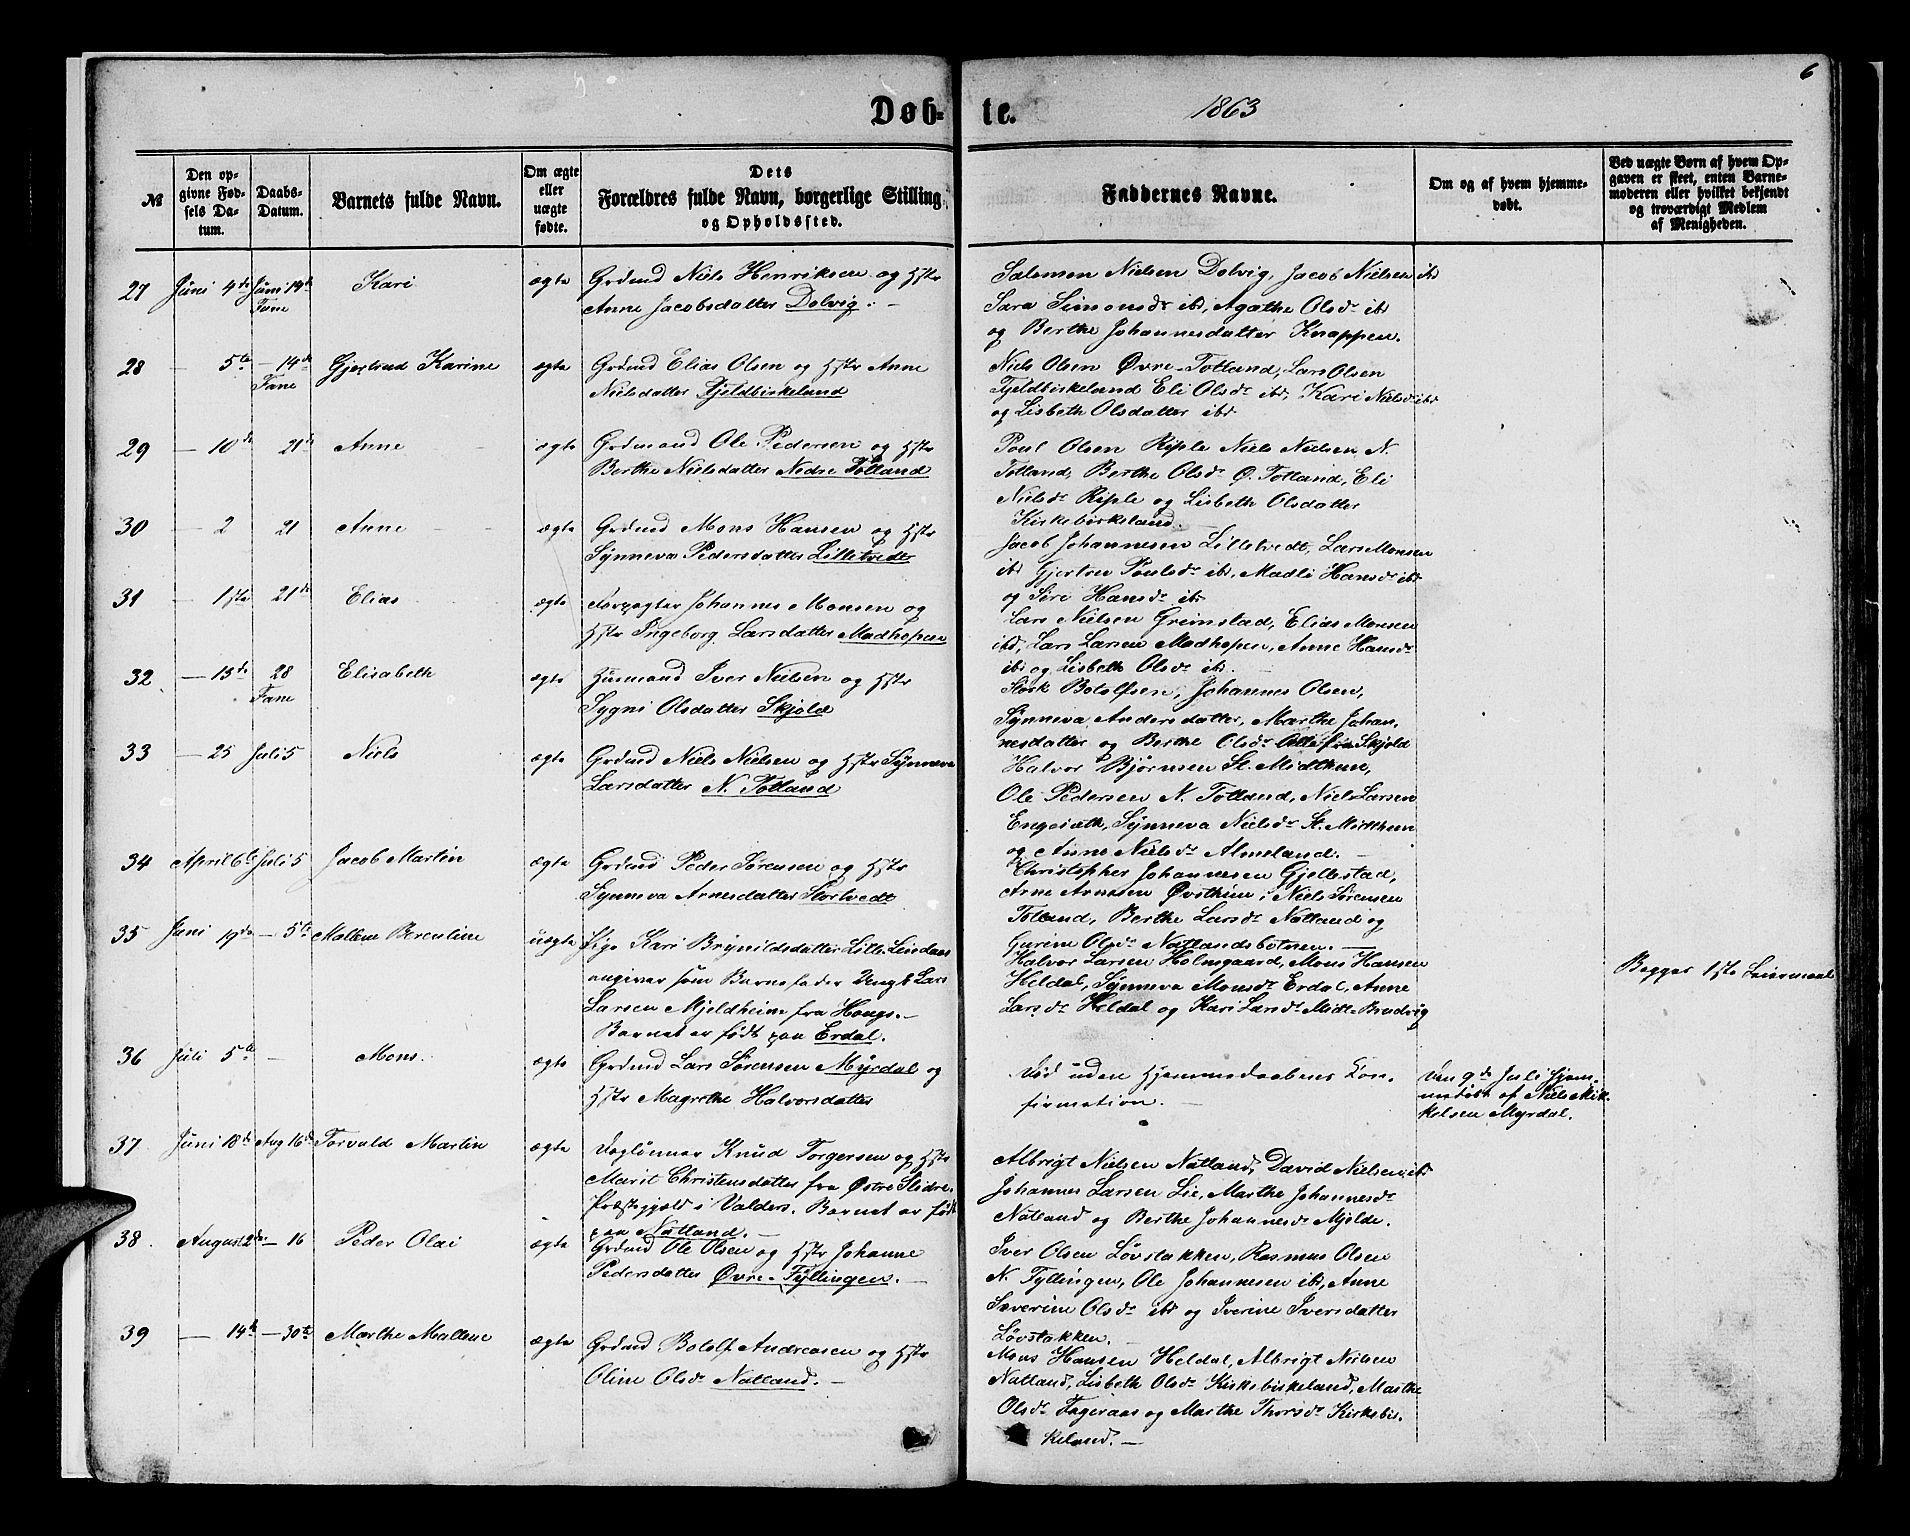 6
Døb-te. 1863
№
Den opgivne Fødsels Datum.
Daabs-Datum.
Barnets fulde Navn.
Om ægte eller uægte fødte.
Dets Forældres fulde Navn, borgerlige Stilling og Opholdssted.
Faddernes Navne.
Om og af hvem hjemmedøbt.
Ved uægte Børn af hvem Opgaven er skeet, enten Barnemoderen eller hvilket bekjendt og troværdigt Medlem af Menigheden.
27 Juni 4de Juni 14de Fane Kari ægte
Grdmd Niels Henriksen og Hstr
Anne Jacobsdatter Dolvig. —
Salomon Nielsen Dolvig, Jacob Nielsen ibd
Sara Simonsdr ibd, Agathe Olsdr ibd
og Berthe Johannesdatter Knappen.
28 — 5te — 14de Fane Gjertrud Karine ægte
Grdmd Elias Olsen og Hstr Anne
Nielsdatter Fjeldbirkeland
Niels Olsen Øvre-Totland, Lars Olsen
Fjeldbirkeland Eli Olsdr ibd, Kari Nielsdr ibd
og Lisbeth Olsdatter ibd
29 — 10de 21de Anne ægte
Grdmand Ole Pedersen og Hstr
Berthe Nielsdatter Nedre Totland
Poul Olsen Riple Niels Nielsen N.
Totland, Berthe Olsdr Ø. Totland, Eli
Nielsdr Riple og Lisbeth Olsdatter
Kirkebirkeland.
30 — 2 21 Anne ægte
Grdmd Mons Hansen og Hstr
Synneva Pedersdatter Lilletvedt
Jacob Johannesen Lilletvedt, Lars Monsen
ibd Gjertru Poulsdr ibd, Madli Hansdr ibd
og Siri Hansdr ibd
31 — 1ste 21de Elias ægte
Forpagter Johannes Monsen og
Hstr Ingeborg Larsdatter Madhopen
Lars Nielsen Grimstad, Elias Monsen
ibd, Lars Larsen Madhopen, Anne Hansdr
ibd og Lisbeth Olsdr ibd.
32 — 13de 28 Fane Elisabeth ægte
Husmand Iver Nielsen og Hstr
Sygni Olsdatter Skjold
Stork Botolfsen, Johannes Olsen,
Synneva Andersdatter, Marthe Johan-
nesdatter og Berthe Olsdr Alle fra Skjold
33 — 25 Juli 5 Niels ægte
Grdmd Niels Nielsen og Hstr Synneva
Larsdatter N. Totland
Halvor Bjørnsen St. Midthun,
Ole Pedersen N. Totland, Niels Larsen
Synneva Nielsdr St. Midthun
og Anne Nielsdr Almeland. —
34 April 6te Juli 5 Jacob Martin ægte
Grdmd Peder Sørensen og Hstr
Synneva Arnesdatter Stortvedt
Christopher Johannesen Gjellestad,
Arne Arnesen Øvsthun, Niels Sørensen
Totland, Berthe Larsdr Natland og
Gurine Olsdr Natlandsbotnen. —
35 Juni 19de — 5te Mallene Berentine uægte
Pige Kari Brynildsdatter Lille Lindaas
angiver som Barnefader Ungk Lars
Larsen Mjeldheim fra Houg. —
Barnet er født paa Erdal.
Halvor Larsen Holmgaard, Mons Hansen
Heldal, Synneva Monsdr Erdal, Anne
Larsdr Heldal og Kari Larsdr Midt-Bradvig
Begges 1ste Leiermaal
36 Juli 5te — Mons. ægte
Grdmd Lars Sørensen Myrdal og
Hstr Magrethe Halvorsdatter
Død uden Hjemmedaabens Con-
firmation. —
Den 9de Juli hjem-
medøbt af Niels Mik-
kelsen Myrdal.
37 Juni 18de Aug 16de Torvald Martin ægte
Daglønner Knud Torgersen og Hstr
Marit Christensdatter fra Østre Slidre
Præstegjæld i Valders. Barnet er født
paa Natland. —
Albrigt Nielsen Natland, David Nielsen ibd
Johannes Larsen Lie, Marthe Johannesdr
Natland og Berthe Johannesdr Mjelde.
38 August 2den — 16 Peder Olai ægte
Grdmd Ole Olsen og Hstr Johanne
Pedersdatter Øvre-Fyllingen. —
Iver Olsen Løvstakken, Rasmus Olsen
N. Fyllingen, Ole Johannesen ibd, Anne
Severine Olsdr ibd og Iverine Iversdatter
Løvstakken.
39 — 14de — 30te Marthe Mallene ægte
Grdmd Botolf Andreasen og Hstr
Oline Olsdr Natland. —
Mons Hansen Heldal, Albrigt Nielsen
Natland, Lisbeth Olsdr Kirkebirkeland, Marthe
Olsdr Fageraas og Marthe Thorsdr Kirkebir-
keland. —